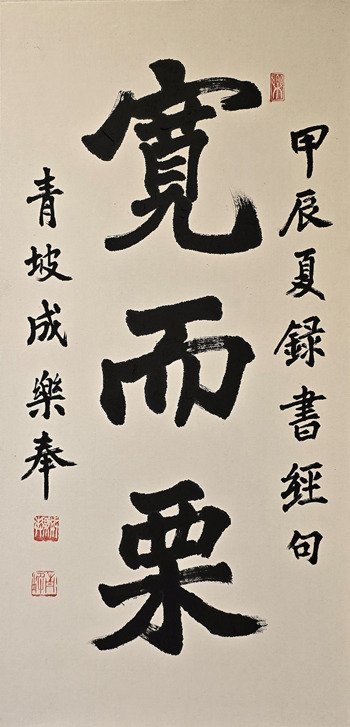 甲辰夏録書經句
寬而栗
青坡成樂奉